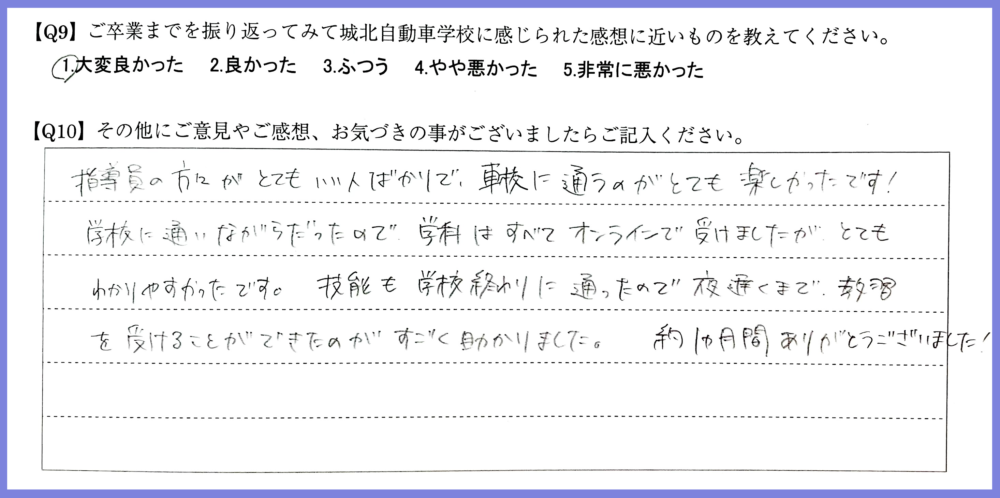 【Q9】ご卒業までを振り返ってみて城北自動車学校に感じられた感想に近いものを教えてください。
1.大変良かった 2.良かった 3.ふつう 4.やや悪かった 5.非常に悪かった
【Q10】その他にご意見やご感想、お気づきの事がございましたらご記入ください。
指導員の方々がとてもいい人ばかりで、車校に通うのがとても楽しかったです!
学校に通いながらだったので、学科はすべてオンラインで受けましたが、とても
わかりやすかったです。技能も学校終わりに通ったので夜遅くまで、教習
を受けることができたのがすごく助かりました。 約1ヵ月間ありがとうございました!